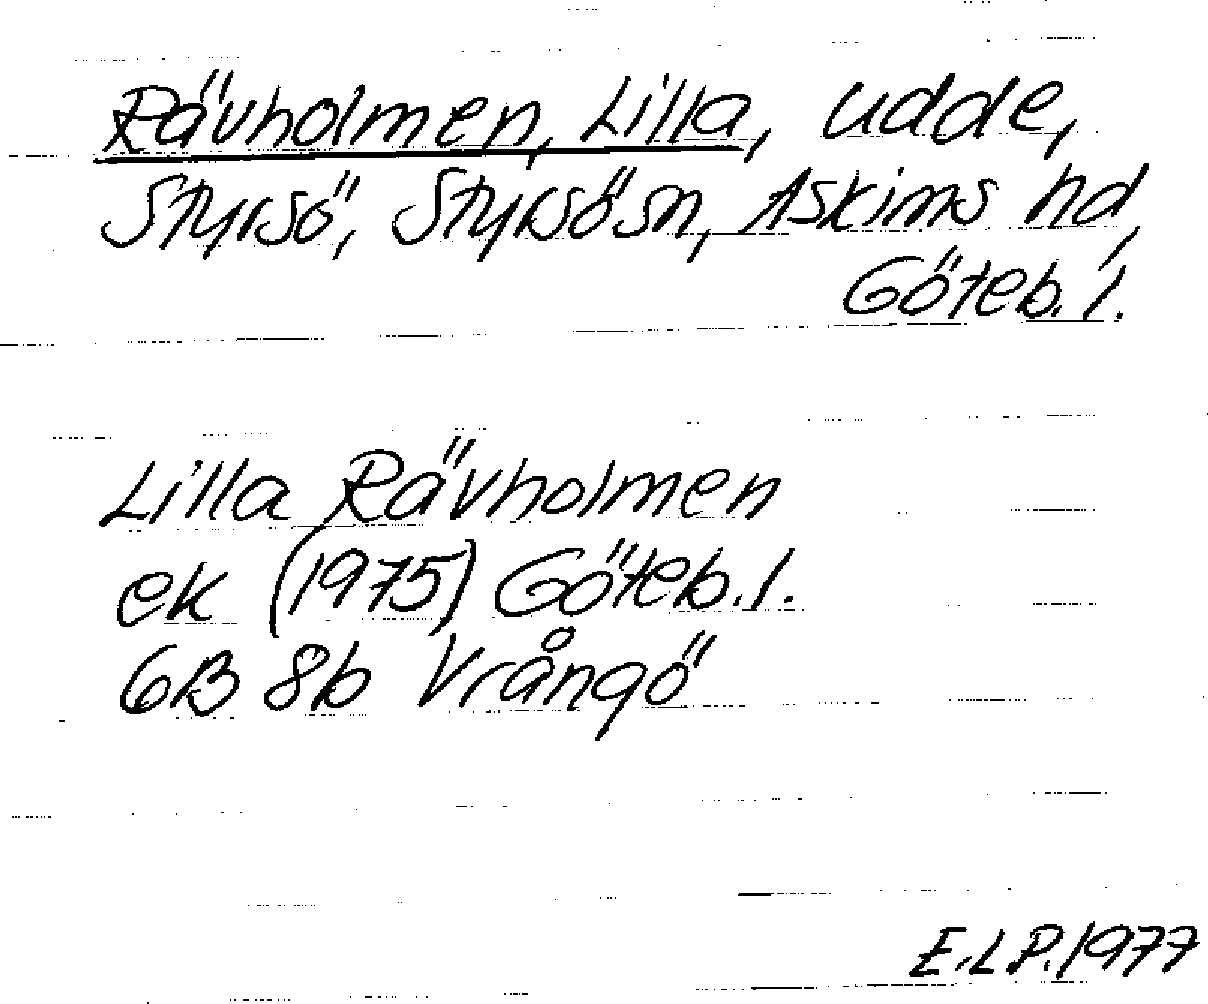 Rävholmen, Lilla, udde,
Styrsö, Styrsö sn, Askims hd,
Göteb. l.
Lilla Rävholmen
ek (1975) Göteb. l.
6B 8b Vrångö
E.L.P. 1977